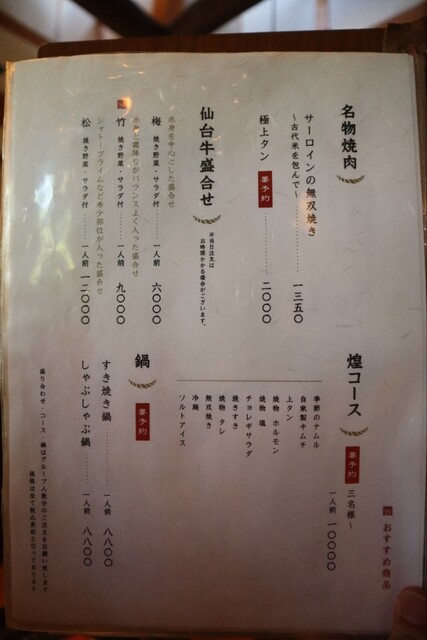 名物焼肉
サーロインの無双焼き
〜古代米を包んで〜 一三五〇
極上タン 要予約 二〇〇〇
仙台牛盛合せ
※当日注文は
お時間かかる場合がございます。
赤身を中心とした盛合せ
梅 焼き野菜・サラダ付 一人前 六〇〇〇
赤身と霜降りがバランスよく入った盛合せ
竹 焼き野菜・サラダ付 一人前 九〇〇〇
シャトーブリアムなど希少部位が入った盛合せ
松 焼き野菜・サラダ付 一人前 一二〇〇〇
おすすめ商品
煌コース 要予約 三名様〜
一人前 一〇〇〇〇
季節のナムル
自家製キムチ
上タン
焼物 ホルモン
焼物 塩
チョレギサラダ
焼きすき
焼物 タレ
無双焼き
冷麺
ソルトアイス
鍋 要予約
すき焼き鍋 一人前 八八〇〇
しゃぶしゃぶ鍋 一人前 八八〇〇
盛り合わせ・コース・鍋はグループ人数分のご注文をお願い致します
価格は全て税込表記となっております